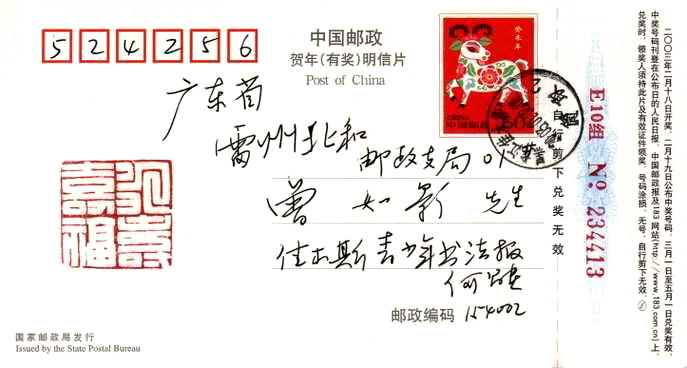 524256
中国邮政
贺年(有奖)明信片
Post of China
癸未年
CHINA
中国邮政
广东省
雷州北和
邮政支局01
曾如影 先生
佳木斯青少年书法报
邮政编码 154002
国家邮政局发行
Issued by the State Postal Bureau
自行剪下兑奖无效
E10组 No. 234413
二○○三年二月十八日开奖,二月十九日公布中奖号码,三月一日至五月一日兑奖有效。
中奖号码刊登在公布日的人民日报、中国邮政报及183网站(http://www.183.com.cn)上。
兑奖时,领奖人须持此片及有效证件领奖,号码涂损、无号、自行剪下无效。